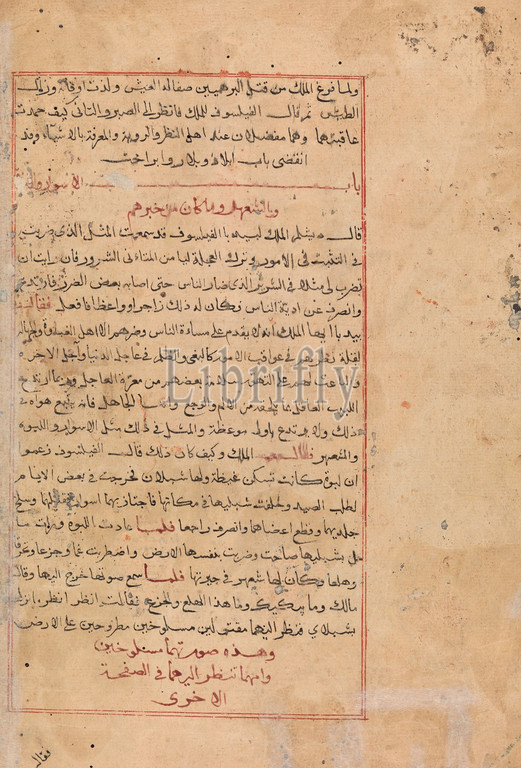 ولما فرغ الملك من قتل البرهميين صفا له العيش ولذت اوقاته وزال
الطيش ثم قال الفيلسوف للملك فانظر الى الصبر والتاني كيف حمدت
عاقبتهما وهما مفضيلان عند اهل النظر والروية والمعرفة بالاشياء وقد
انقضى باب ايلاد وبلاد وايراخت
باب الاسوار
والشعهر وما كان من خبرهم
قال دبشلم الملك لبيدبا الفيلسوف قد سمعت المثل الذي ضربت
في التثبت في الامور وترك العجلة فان رايت ان
تضرب لي مثلا في الشرير الذي ضار الناس حتى اصابه بعض الضرر فارتدع
وانصرف عن اذية الناس وكان له ذلك زاجرا وواعظا فقال
بيدبا ايها الملك انه لا يقدم على مساءة الناس وضرهم الا اهل
لقلة نظرهم في عواقب الامور كالبغي والظلم في عاجل الدنيا واجل الاخرة
بعضهم من معرة العاجل وربما ارتدع
اللبيب العاقل بما يلحقه من الالم والوجع واما الجاهل فانه يتبع هواه في
ذلك ولا يرتدع باول موعظة والمثل في ذلك مثل الاسوار واللبوة
والشعهر قال الملك وكيف كان ذلك قال الفيلسوف زعموا
ان لبوة كانت تسكن غيضة ولها شبلان فخرجت في بعض الايام
لطلب الصيد وخلفت شبليها في مكانها فاجتاز بهما اسوار فقتلهما وسلخ
جلديهما وقطع اعضاهما وانصرف راجعا فلما عادت اللبوة ورات ما
حل بشبليها صاحت وضربت بنفسها الارض واضطربت غما وجزعا
وهلعا وكان لها شعهر في جيرتها فلما سمع صوتها خرج اليها وقال
مالك وما يبكيك وما هذا الهلع والجزع فقالت انظر انظر
بشبلاي فنظر اليهما مقتولين مسلوخين مطروحين على الارض
وهذه صورتهما مسلوخين
وامهما تنظر اليهما في الصفحة
الاخرى
فقال
Librifly